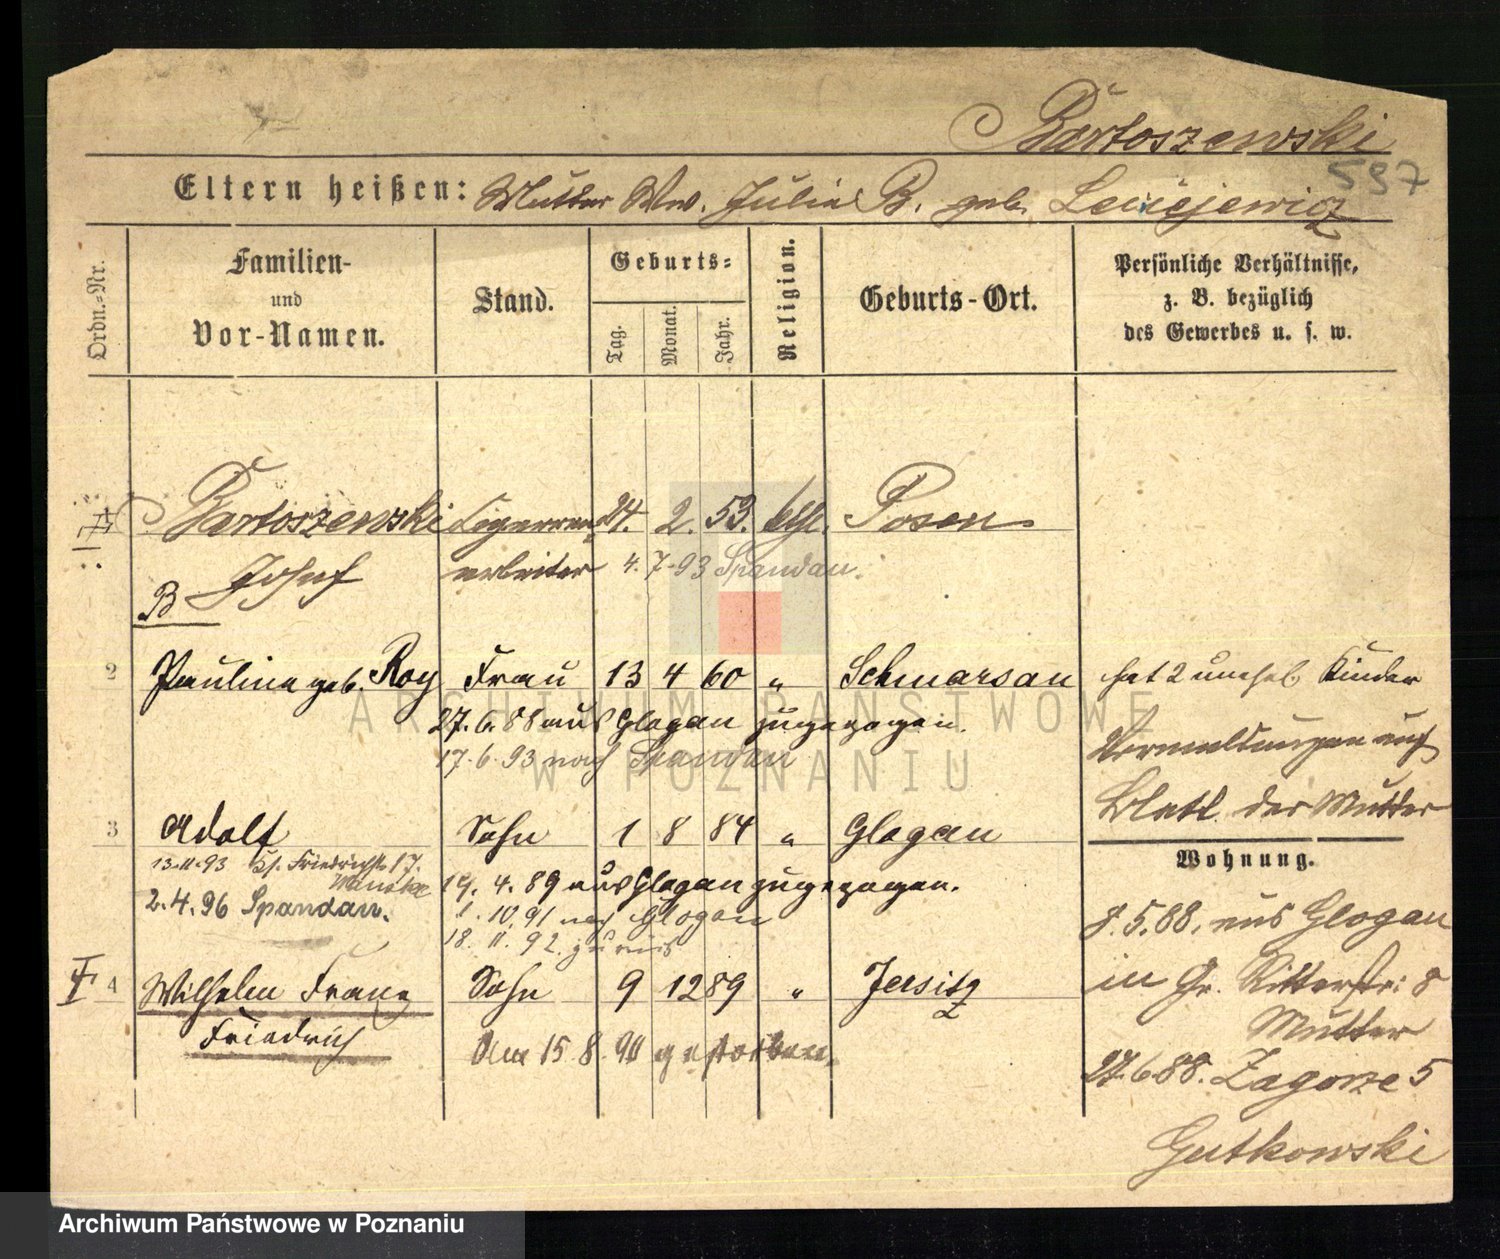 Bartoszewski
597
Eltern heißen: Mutter Ww. Julie B. geb.
Ordn.-Nr.
Familien-
und
Vor-Namen.
Stand.
Geburts-
Tag.
Monat.
Jahr.
Religion.
Geburts-Ort.
Persönliche Verhältnisse,
z. B. bezüglich
des Gewerbes u. s. w.
1 Bartoszewski 24. 2. 53. kath. Posen
Josef arbeiter 4. 7. 93 Spandau.
B
2 Pauline geb. Roy Frau 13 4 60 " Schmarsau hat 2 unehel. Kinder
27. 6. 88 aus Glogau zugezogen.
17. 6. 93 nach Spandau
Vermeldungen auf
Blatt der Mutter
3 Adolf Sohn 1 8 84 " Glogau
13.11.93 Friedrichstr. 17.
2. 4. 96 Spandau.
19. 4. 89 aus Glogau zugezogen.
1. 10. 91 nach Glogau
18. 11. 92. zurück
Wohnung.
8. 5. 88. aus Glogau
in Gr. Ritterstr: 8
Mutter
27. 6. 88. Zagorze 5
Gutkowski
4 Wilhelm Franz Sohn 9 12 89 " Jersitz
Friedrich
Am 15. 8. 90 gestorben.
ARCHIWUM PAŃSTWOWE
W POZNANIU
Archiwum Państwowe w Poznaniu